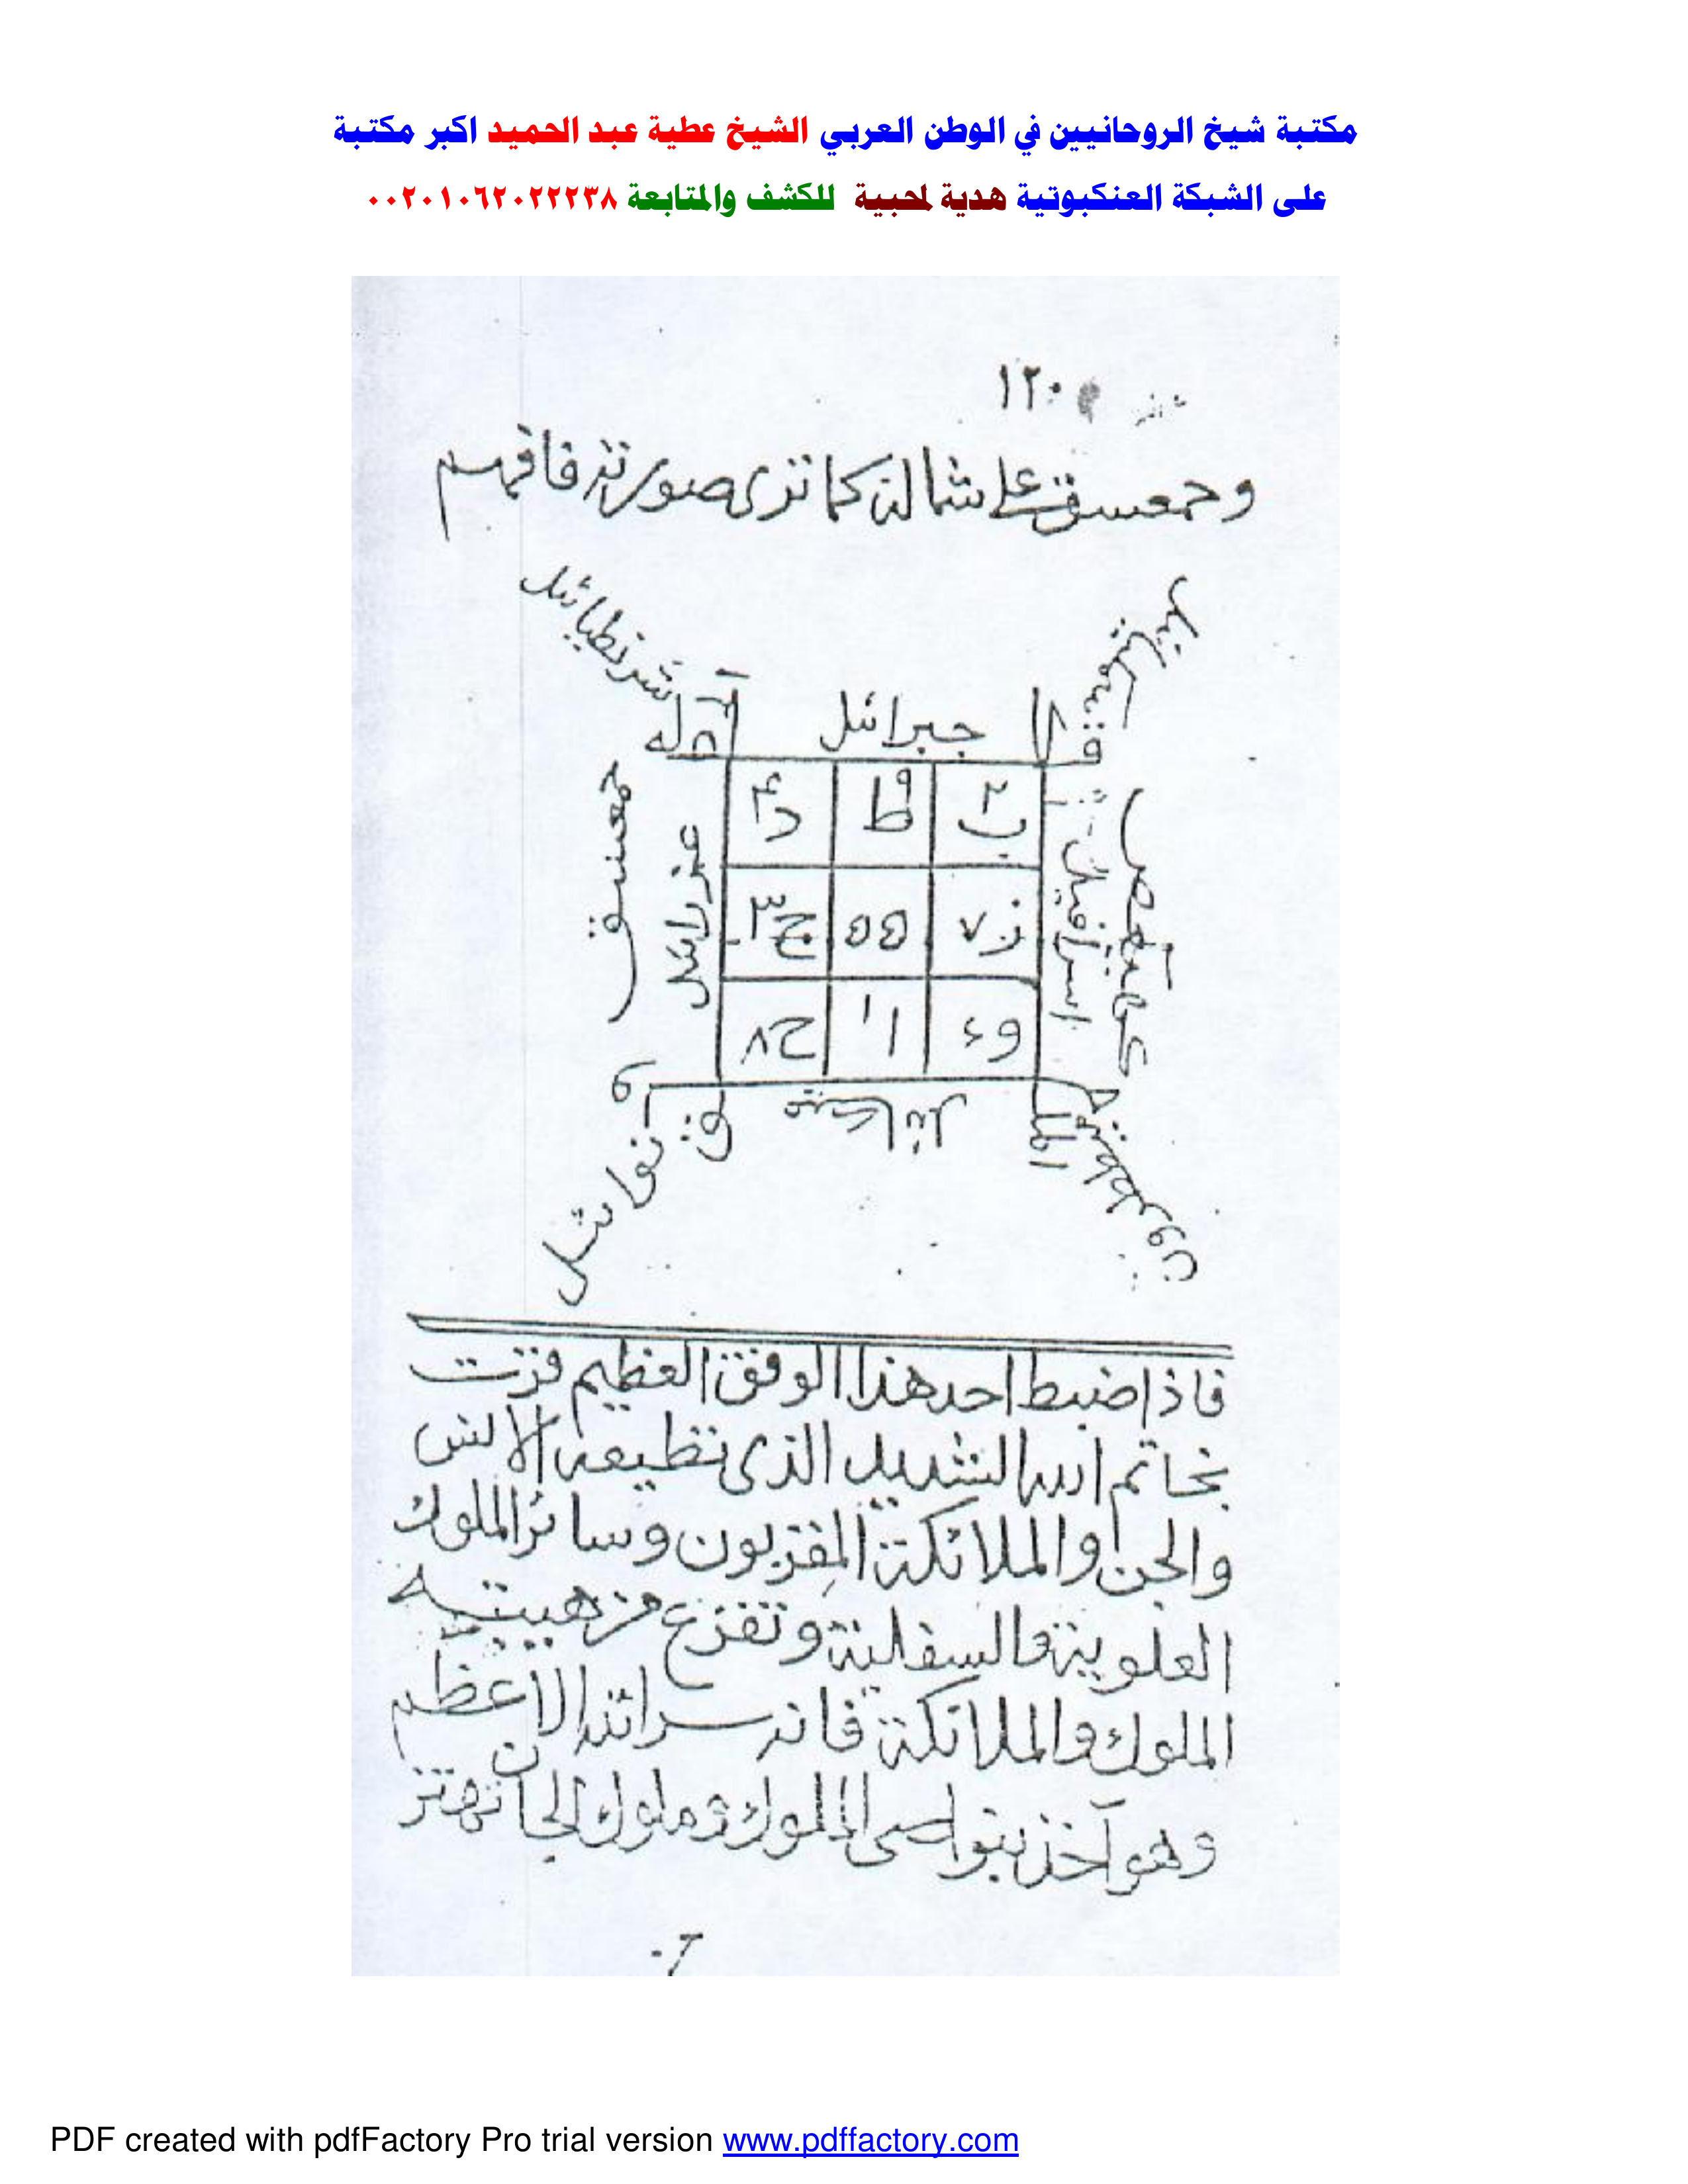 مكتبة شيخ الروحانيين في الوطن العربي الشيخ عطية عبد الحميد اكبر مكتبة
على الشبكة العنكبوتية هدية لمحبية للكشف والمتابعة ٠٠٢٠١٠٦٢٠٢٢٢٣٨
١٢٠
وحمعسق على شماله كما ترى صورته فافهم
شرنطيائيل
جبرائيل
٢ ب ٩ ط ٤ د
ز ٧ ٥ ه ج ٣
و ٦ ١ ا ح ٨
اسرافيل
كهيعص
عزرائيل
حمعسق
الملك
فاذا ضبط احد هذا الوفق العظيم فزت
بخاتم الله الشديد الذى تطيعه الانس
والجن والملائكة المقربون وسائر الملوك
العلوية والسفلية وتفزع من هيبته
الملوك والملائكة فانه سر الله الاعظم
وهو آخذ بنواصى الملوك وملوك الجان تهتز
PDF created with pdfFactory Pro trial version www.pdffactory.com